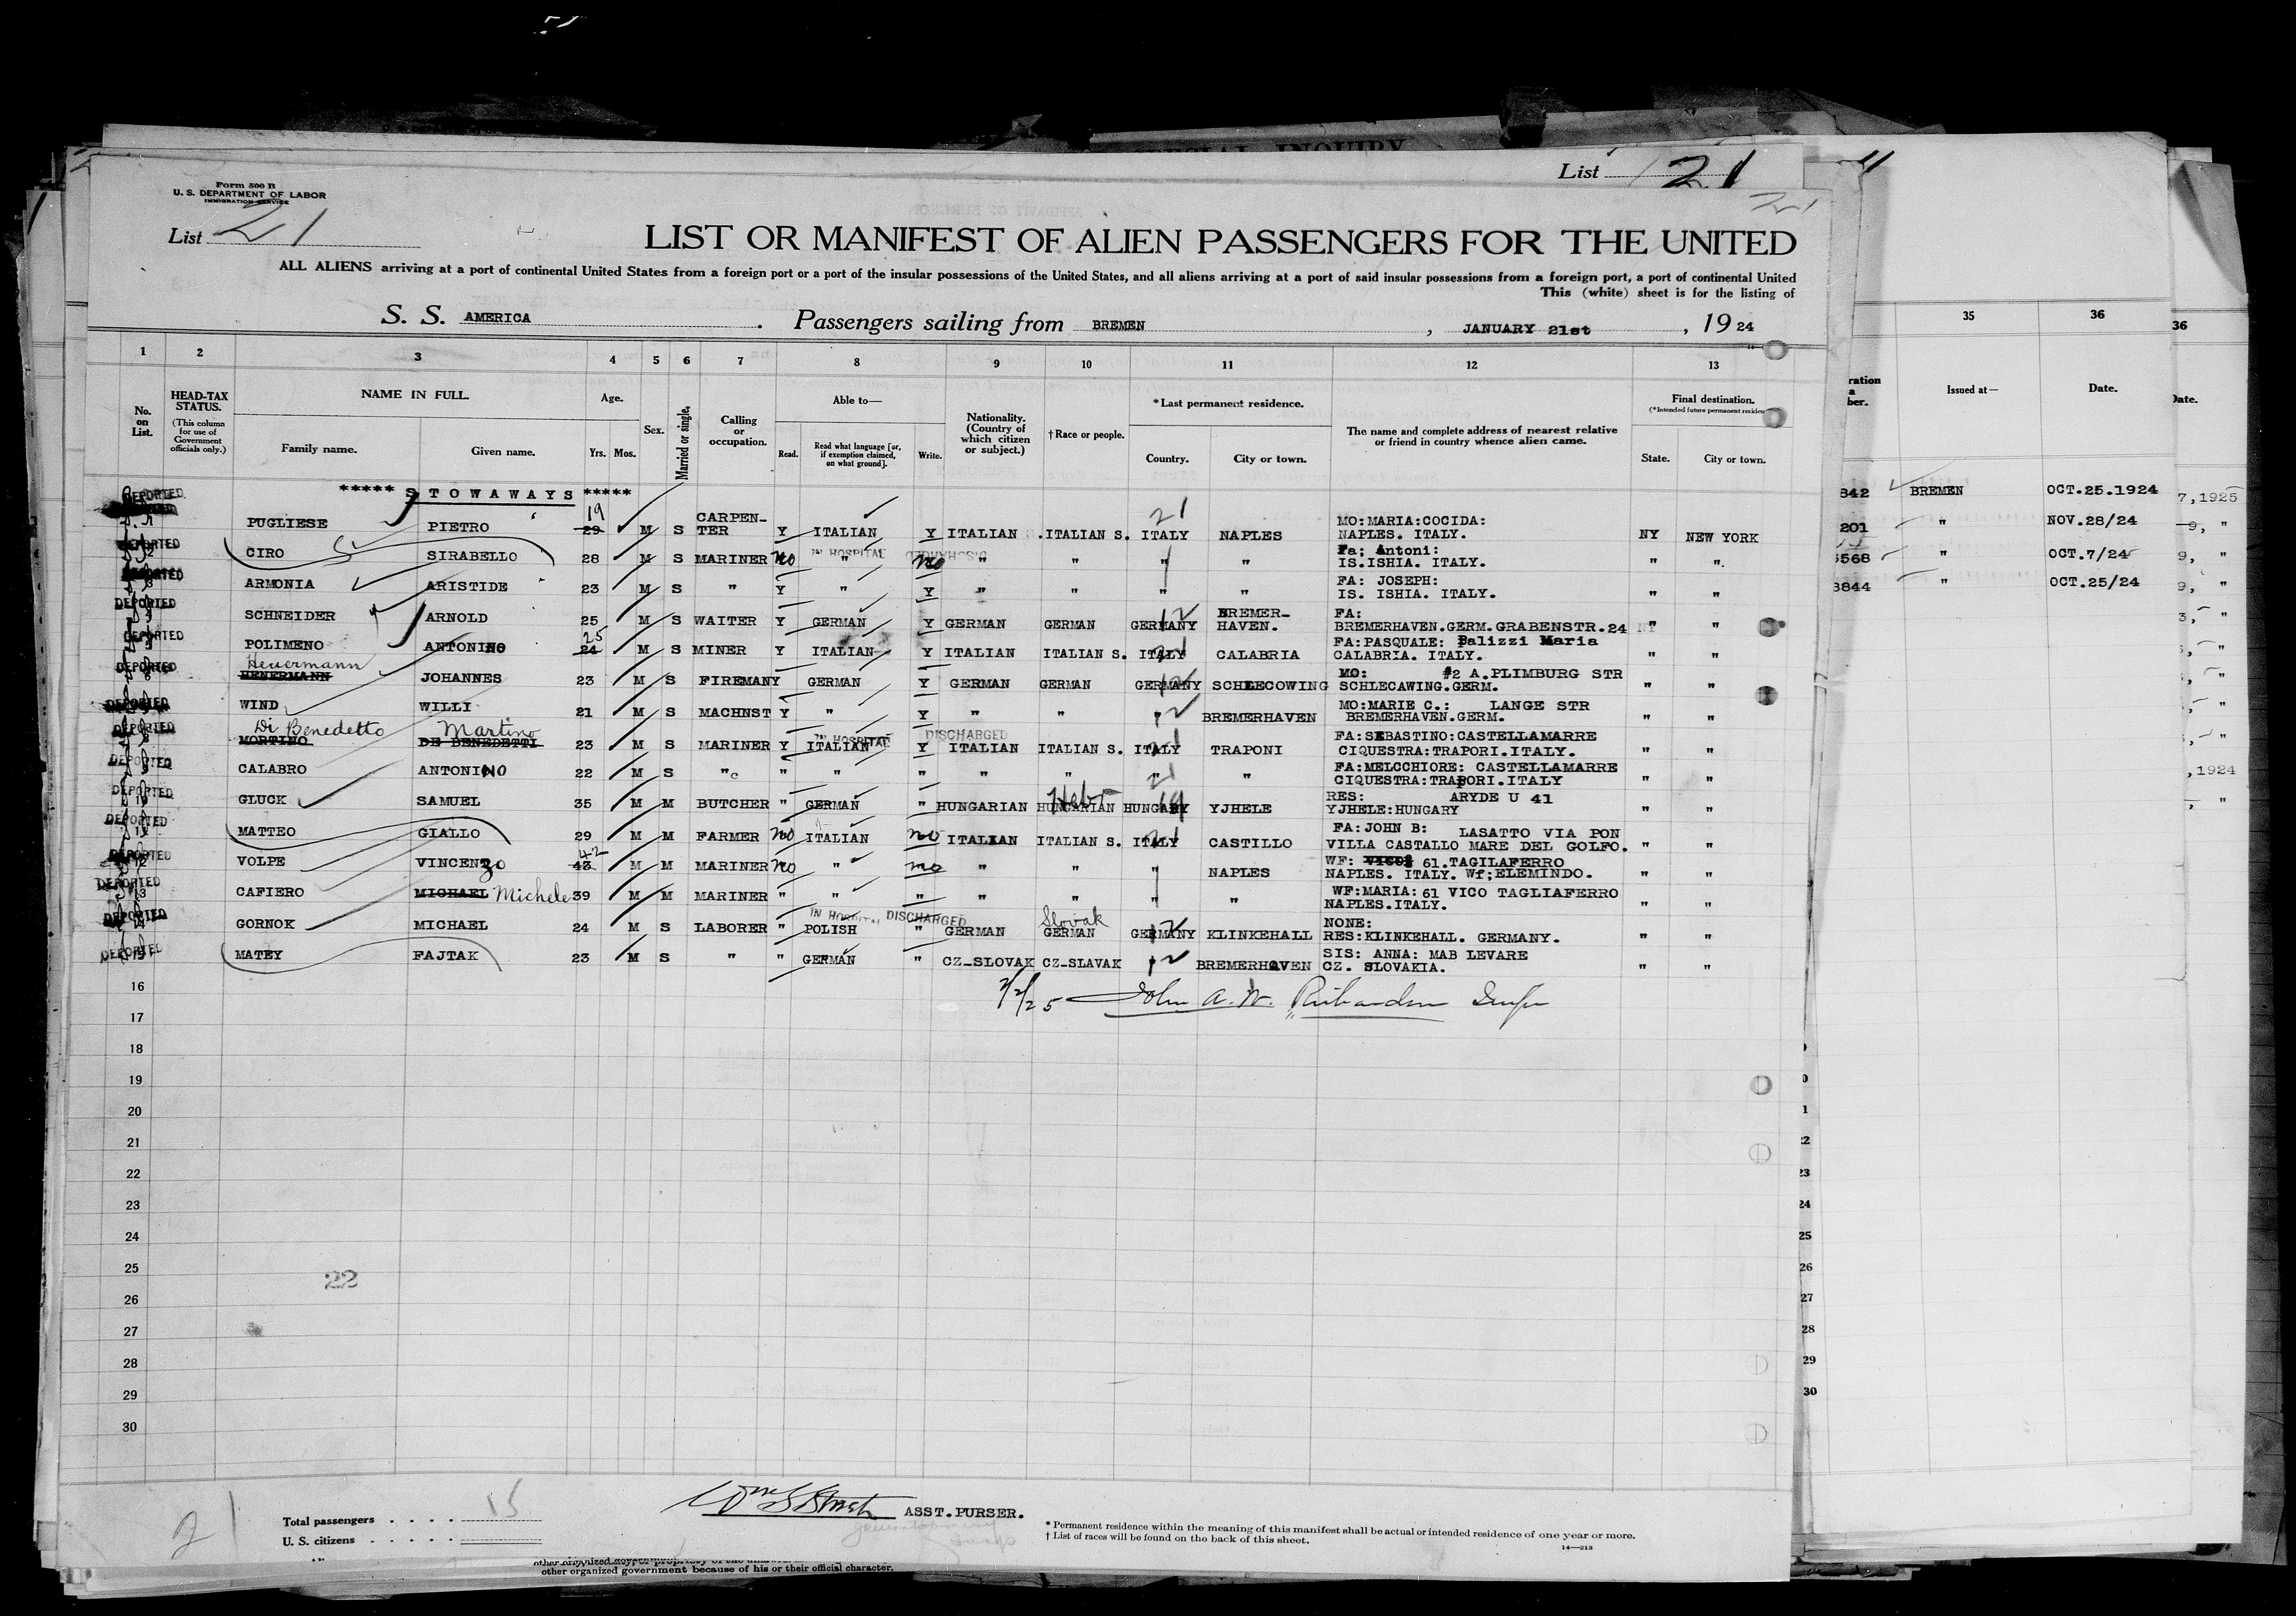 SPECIAL INQUIRY
List 21
Form 500 B
U. S. DEPARTMENT OF LABOR
IMMIGRATION SERVICE
List 21
LIST OR MANIFEST OF ALIEN PASSENGERS FOR THE UNITED
ALL ALIENS arriving at a port of continental United States from a foreign port or a port of the insular possessions of the United States, and all aliens arriving at a port of said insular possessions from a foreign port, a port of continental United
This (white) sheet is for the listing of
S. S. AMERICA . Passengers sailing from BREMEN , JANUARY 21st , 19 24
1 2 3 4 5 6 7 8 9 10 11 12 13
No. on List.
HEAD-TAX STATUS.
(This column for use of Government officials only.)
NAME IN FULL.
Family name. Given name.
Age.
Yrs. Mos.
Sex.
Married or single.
Calling or occupation.
Able to—
Read. Read what language [or, if exemption claimed, on what ground]. Write.
Nationality. (Country of which citizen or subject.)
† Race or people.
*Last permanent residence.
Country. City or town.
The name and complete address of nearest relative or friend in country whence alien came.
Final destination.
(*Intended future permanent residen
State. City or town.
***** S T O W A W A Y S *****
DEPORTED PUGLIESE PIETRO 29 19 M S CARPEN-TER Y ITALIAN Y ITALIAN ITALIAN S. ITALY 21 NAPLES MO: MARIA:COCIDA: NAPLES. ITALY. NY NEW YORK
DEPORTED 2 CIRO SIRABELLO 28 M S MARINER no " IN HOSPITAL DISCHARGED no " " " " Fa; Antoni: IS.ISHIA. ITALY. " "
DEPORTED 3 ARMONIA ARISTIDE 23 M S " Y " Y " " " " FA: JOSEPH: IS. ISHIA. ITALY. " "
DEPORTED SCHNEIDER ARNOLD 25 M S WAITER Y GERMAN Y GERMAN GERMAN GERMANY 12 BREMER-HAVEN. FA: BREMERHAVEN.GERM.GRABENSTR.24 " "
DEPORTED POLIMENO ANTONINO 24 25 M S MINER Y ITALIAN Y ITALIAN ITALIAN S. ITALY 21 CALABRIA FA:PASQUALE: Palizzi Maria CALABRIA. ITALY. " "
DEPORTED 6 HENERMANN Heuermann JOHANNES 23 M S FIREMAN Y GERMAN Y GERMAN GERMAN GERMANY 12 SCHLECOWING MO: #2 A.PLIMBURG STR SCHLECAWING.GERM. " "
DEPORTED WIND WILLI 21 M S MACHNST Y " Y " " " 12 BREMERHAVEN MO:MARIE C.: LANGE STR BREMERHAVEN.GERM. " "
DEPORTED 8 MORTINO Di Benedetto DE BENEDETTI Martino 23 M S MARINER Y ITALIAN IN HOSPITAL DISCHARGED Y ITALIAN ITALIAN S. ITALY 21 TRAPONI FA:SEBASTINO:CASTELLAMARRE CIQUESTRA:TRAPORI.ITALY. " "
DEPORTED CALABRO ANTONINO 22 M S " " " " " " " 21 " FA:MELCCHIORE: CASTELLAMARRE CIQUESTRA:TRAPORI.ITALY " "
DEPORTED 10 GLUCK SAMUEL 35 M M BUTCHER " GERMAN " HUNGARIAN HUNGARIAN Hebr HUNGARY YJHELE RES: ARYDE U 41 YJHELE:HUNGARY " "
DEPORTED 11 MATTEO GIALLO 29 M M FARMER no ITALIAN no ITALIAN ITALIAN S. ITALY 21 CASTILLO FA:JOHN B: LASATTO VIA PON VILLA CASTALLO MARE DEL GOLFO. " "
DEPORTED 12 VOLPE VINCENZO 43 42 M M MARINER no " no " " " NAPLES WF: VICOS 61.TAGILAFERRO NAPLES. ITALY. Wf;ELEMINDO. " "
DEPORTED 13 CAFIERO MICHAEL Michele 39 M M MARINER " " " " " " " WF:MARIA: 61 VICO TAGLIAFERRO NAPLES.ITALY. " "
DEPORTED 14 GORNOK MICHAEL 24 M S LABORER " POLISH IN HOSPITAL DISCHARGED " GERMAN GERMAN Slovak GERMANY 12 KLINKEHALL NONE: RES:KLINKEHALL. GERMANY. " "
DEPORTED 15 MATEY FAJTAK 23 M S " " GERMAN " CZ-SLOVAK CZ-SLAVAK 12 BREMERHAVEN SIS: ANNA: MAB LEVARE CZ. SLOVAKIA. " "
16 2/2/25 John A. W. Richardson
17
18
19
20
21
22
23
24
25
22
26
27
28
29
30
Total passengers . . . . 15
U. S. citizens . . . . .
ASST. PURSER.
* Permanent residence within the meaning of this manifest shall be actual or intended residence of one year or more.
† List of races will be found on the back of this sheet.
14—213
other organized government because of his or their official character.
35 36
Issued at— Date.
842 BREMEN OCT.25.1924
201 " NOV.28/24
5568 " OCT.7/24
3844 " OCT.25/24
36
Date.
7,1925
9, "
9, "
9, "
3, "
,1924
22
23
24
25
26
27
28
29
30